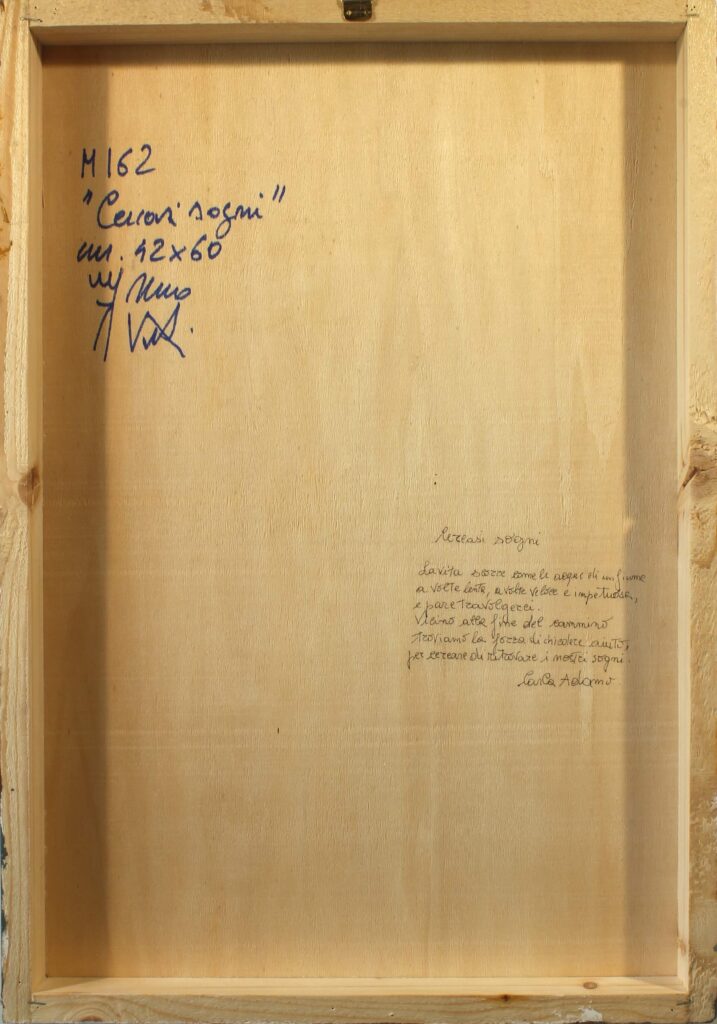 M162
"Cercasi sogni"
cm. 42x60
Cercasi sogni
La vita scorre come le acque di un fiume
a volte lenta, a volte veloce e impetuosa,
e pare travolgerci.
Vicino alla fine del cammino
troviamo la forza di chiedere aiuto,
per cercare di ritrovare i nostri sogni.
Carla Adamo